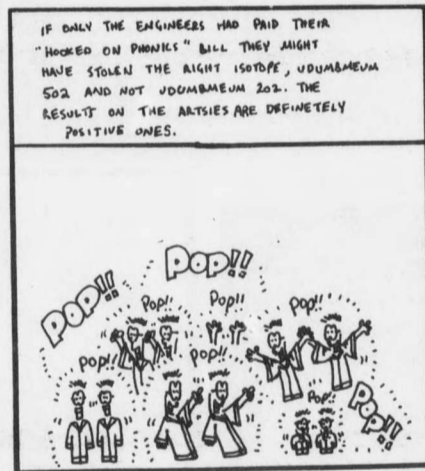 IF ONLY THE ENGINEERS HAD PAID THEIR
"HOOKED ON PHONICS" BILL THEY MIGHT
HAVE STOLEN THE RIGHT ISOTOPE, UDUMBMEUM
502 AND NOT UDUMBMEUM 202. THE
RESULTS ON THE ARTSIES ARE DEFINETELY
POSITIVE ONES.
POP!!
POP!!
POP!!
POP!!
POP!!
POP!!
POP!!
POP!
POP!!